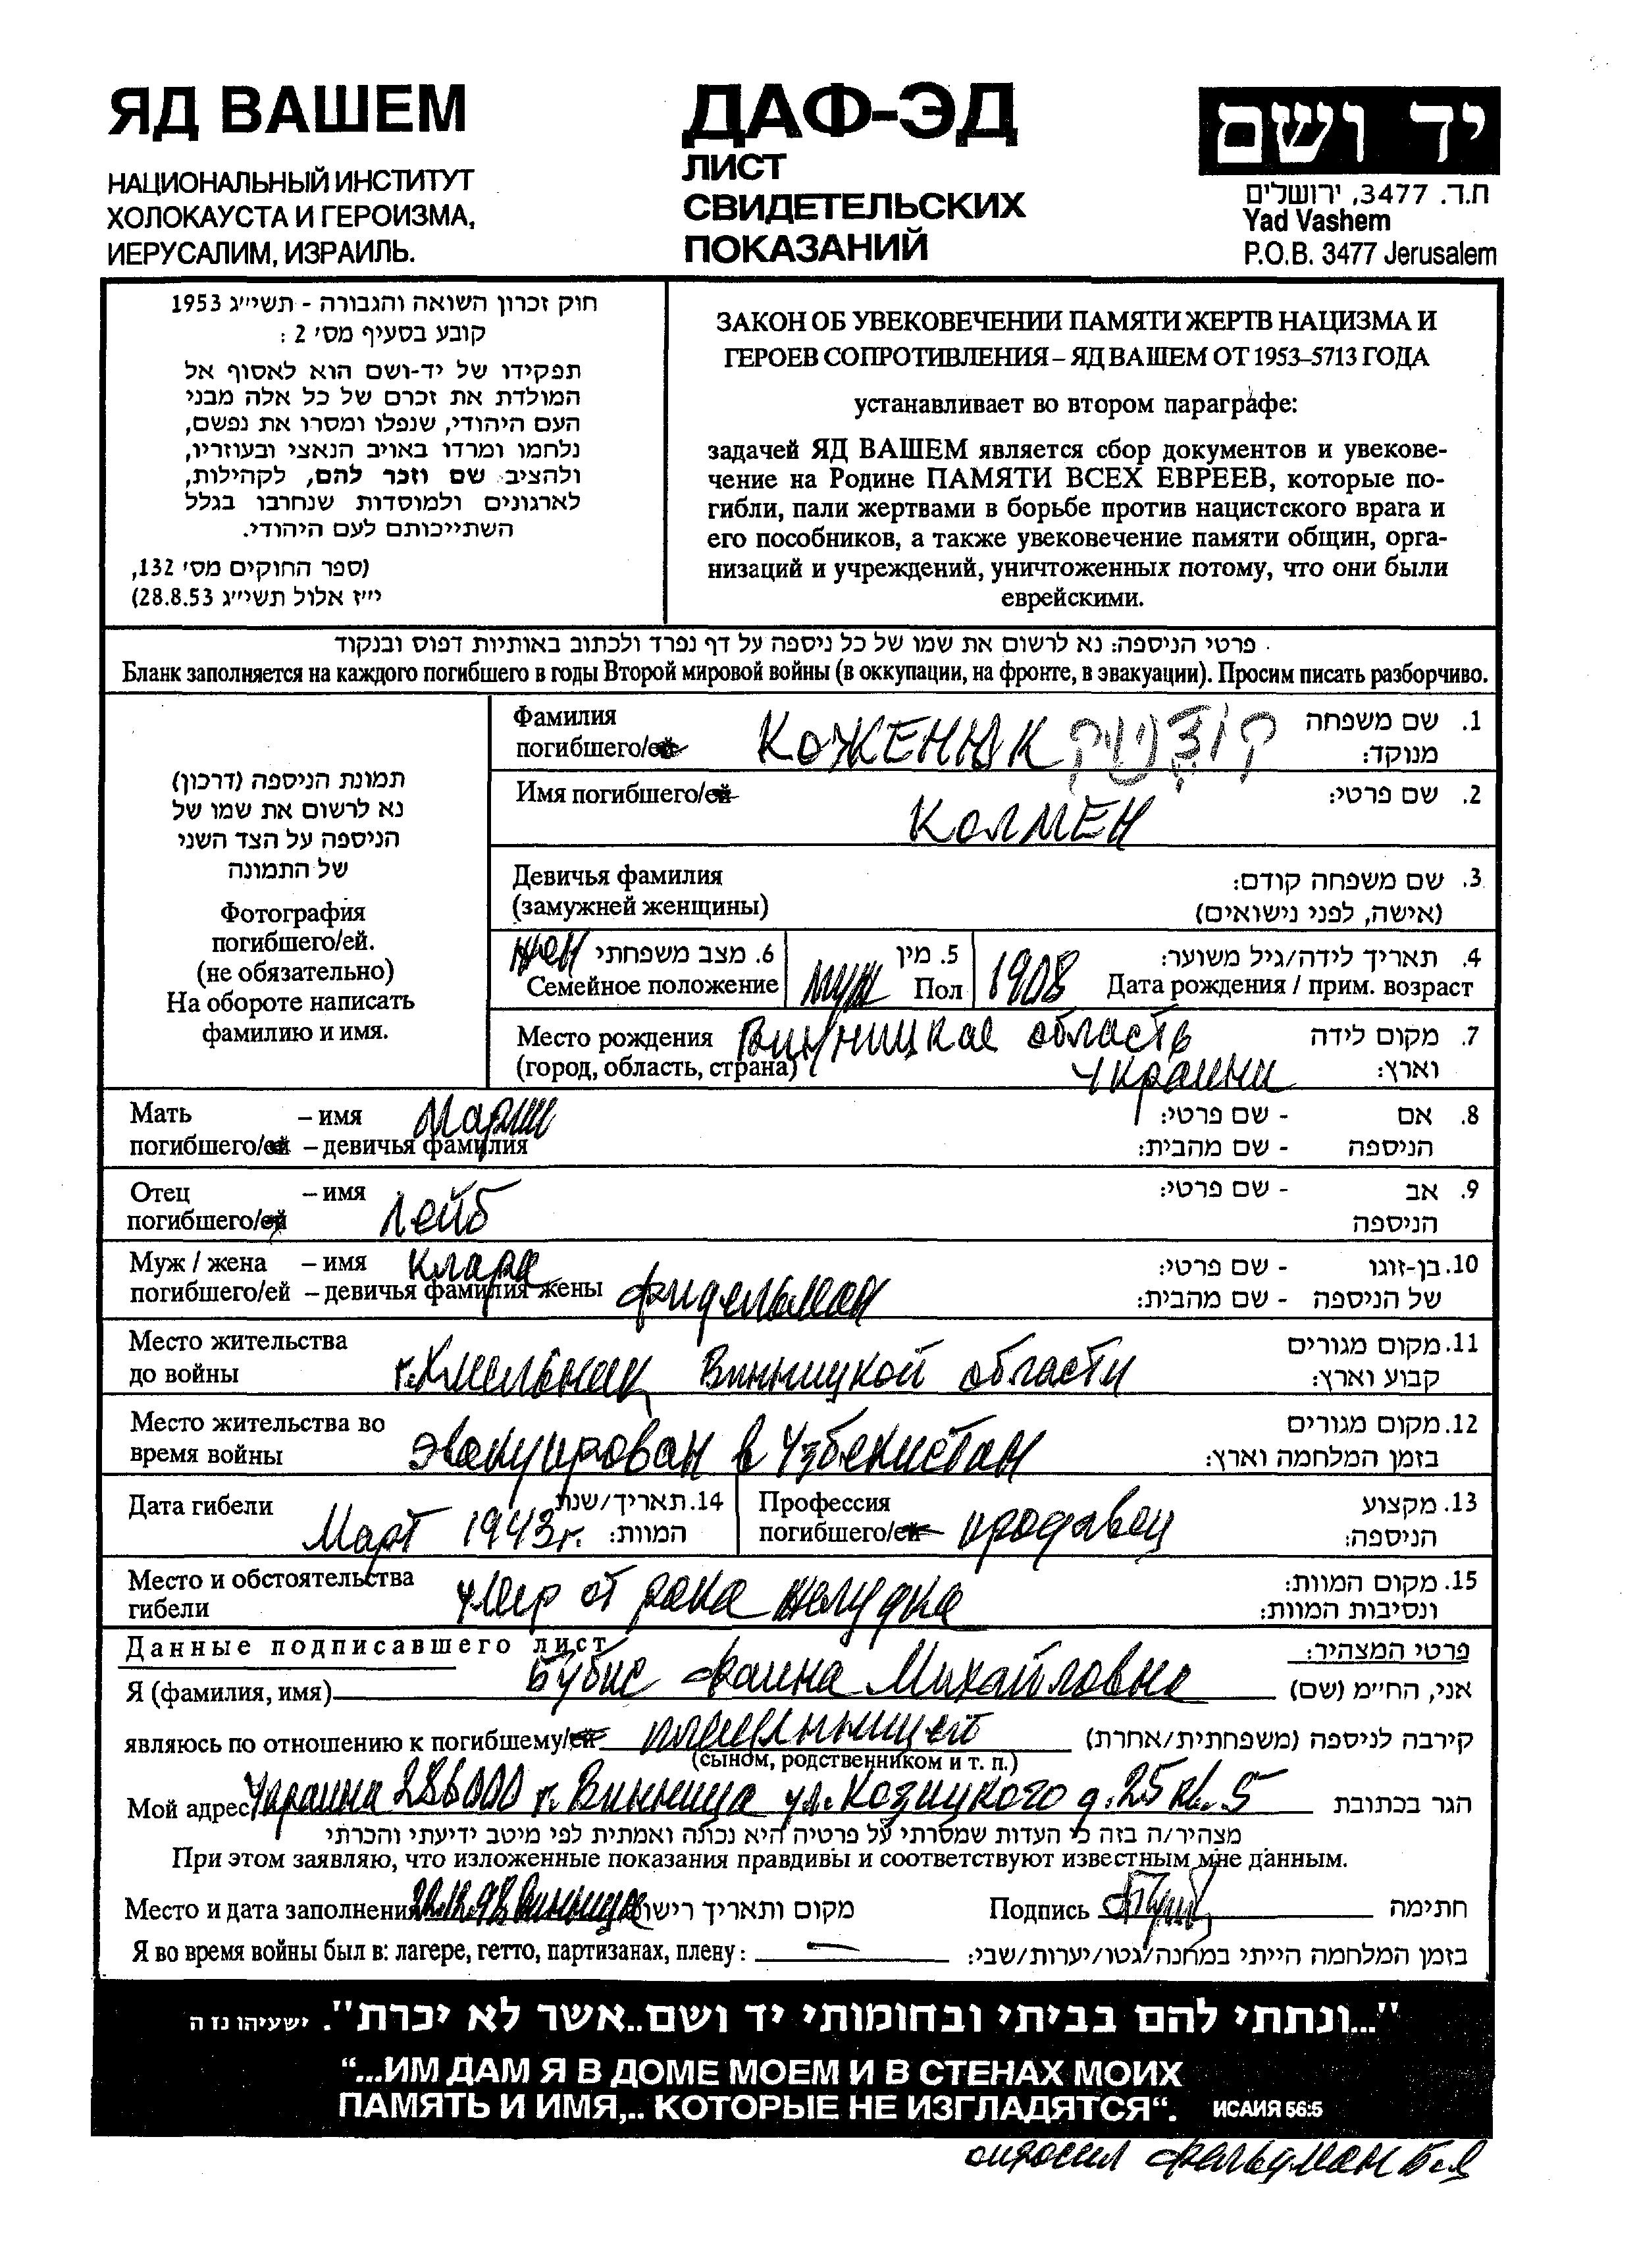 ЯД ВАШЕМ
НАЦИОНАЛЬНЫЙ ИНСТИТУТ
ХОЛОКАУСТА И ГЕРОИЗМА,
ИЕРУСАЛИМ, ИЗРАИЛЬ.
ДАФ-ЭД
ЛИСТ
СВИДЕТЕЛЬСКИХ
ПОКАЗАНИЙ
יד ושם
ת.ד. 3477, ירושלים
Yad Vashem
P.O.B. 3477 Jerusalem
חוק זכרון השואה והגבורה - תשי״ג 1953
קובע בסעיף מס׳ 2 :
תפקידו של יד-ושם הוא לאסוף אל
המולדת את זכרם של כל אלה מבני
העם היהודי, שנפלו ומסרו את נפשם,
נלחמו ומרדו באויב הנאצי ובעוזריו,
ולהציב שם וזכר להם, לקהילות,
לארגונים ולמוסדות שנחרבו בגלל
השתייכותם לעם היהודי.
(ספר החוקים מס׳ 132,
י״ז אלול תשי״ג 28.8.53)
ЗАКОН ОБ УВЕКОВЕЧЕНИИ ПАМЯТИ ЖЕРТВ НАЦИЗМА И
ГЕРОЕВ СОПРОТИВЛЕНИЯ – ЯД ВАШЕМ ОТ 1953–5713 ГОДА
устанавливает во втором параграфе:
задачей ЯД ВАШЕМ является сбор документов и увекове-
чение на Родине ПАМЯТИ ВСЕХ ЕВРЕЕВ, которые по-
гибли, пали жертвами в борьбе против нацистского врага и
его пособников, а также увековечение памяти общин, орга-
низаций и учреждений, уничтоженных потому, что они были
еврейскими.
פרטי הניספה: נא לרשום את שמו של כל ניספה על דף נפרד ולכתוב באותיות דפוס ובנקוד
Бланк заполняется на каждого погибшего в годы Второй мировой войны (в оккупации, на фронте, в эвакуации). Просим писать разборчиво.
תמונת הניספה (דרכון)
נא לרשום את שמו של
הניספה על הצד השני
של התמונה
Фотография
погибшего/ей.
(не обязательно)
На обороте написать
фамилию и имя.
Фамилия 1. שם משפחה
погибшего/ей КОЖЕНЯК מנוקד:
Имя погибшего/ей КОЛМЕН 2. שם פרטי:
Девичья фамилия 3. שם משפחה קודם:
(замужней женщины) (אישה, לפני נישואים)
жен 6. מצב משפחתי 5. מין 4. תאריך לידה/גיל משוער:
Семейное положение муж Пол 1908 Дата рождения / прим. возраст
Место рождения Винницкая область 7. מקום לידה
(город, область, страна) Украины וארץ:
Мать – имя Мария 8. אם - שם פרטי:
погибшего/ей – девичья фамилия הניספה - שם מהבית:
Отец – имя Лейб 9. אב - שם פרטי:
погибшего/ей הניספה
Муж / жена – имя Клара 10. בן-זוגו - שם פרטי:
погибшего/ей – девичья фамилия жены Фидельман של הניספה - שם מהבית:
Место жительства 11. מקום מגורים
до войны г. Хмельник Винницкой области קבוע וארץ:
Место жительства во 12. מקום מגורים
время войны эвакуирован в Узбекистан בזמן המלחמה וארץ:
Дата гибели Март 1943г. 14. תאריך/שנת המוות:
Профессия 13. מקצוע
погибшего/ей продавец הניספה:
Место и обстоятельства 15. מקום המוות:
гибели умер от рака желудка ונסיבות המוות:
Данные подписавшего лист פרטי המצהיר:
Я (фамилия, имя) Бубис Фаина Михайловна אני, החי״מ (שם)
являюсь по отношению к погибшему/ей племянницей קירבה לניספה (משפחתית/אחרת)
(сыном, родственником и т. п.)
Мой адрес Украина 286000 г. Винница ул. Козицкого д. 25 кв. 5 הגר בכתובת
מצהיר/ה בזה כי העדות שמסרתי על פרטיה היא נכונה ואמתית לפי מיטב ידיעתי והכרתי
При этом заявляю, что изложенные показания правдивы и соответствуют известным мне данным.
Место и дата заполнения Винница מקום ותאריך רישום Подпись חתימה
Я во время войны был в: лагере, гетто, партизанах, плену: — בזמן המלחמה הייתי במחנה/גטו/יערות/שבי:
"...ונתתי להם בביתי ובחומותי יד ושם..אשר לא יכרת". ישעיהו נז ה
“...ИМ ДАМ Я В ДОМЕ МОЕМ И В СТЕНАХ МОИХ
ПАМЯТЬ И ИМЯ,.. КОТОРЫЕ НЕ ИЗГЛАДЯТСЯ“. ИСАИЯ 56:5
опросил